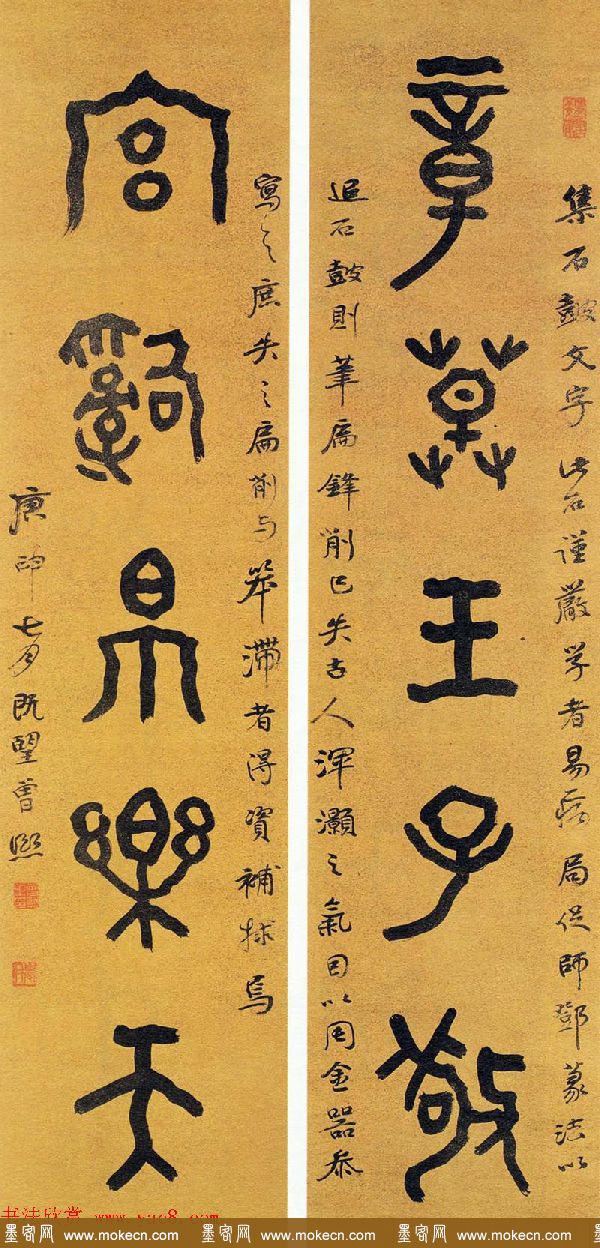 集石鼓文字此石謹嚴学者易病局促師鄧篆法以
章草王子敬
追石鼓則筆扁鋒削已失古人渾灝之氣因以周金器叅
寫之庶失之扁削与笨滯者得資補捄焉
宮辭帛樂天
庚申七月既望曾熙
墨客网 www.mokecn.com 墨客网 www.mokecn.com 墨客网 www.mokecn.com